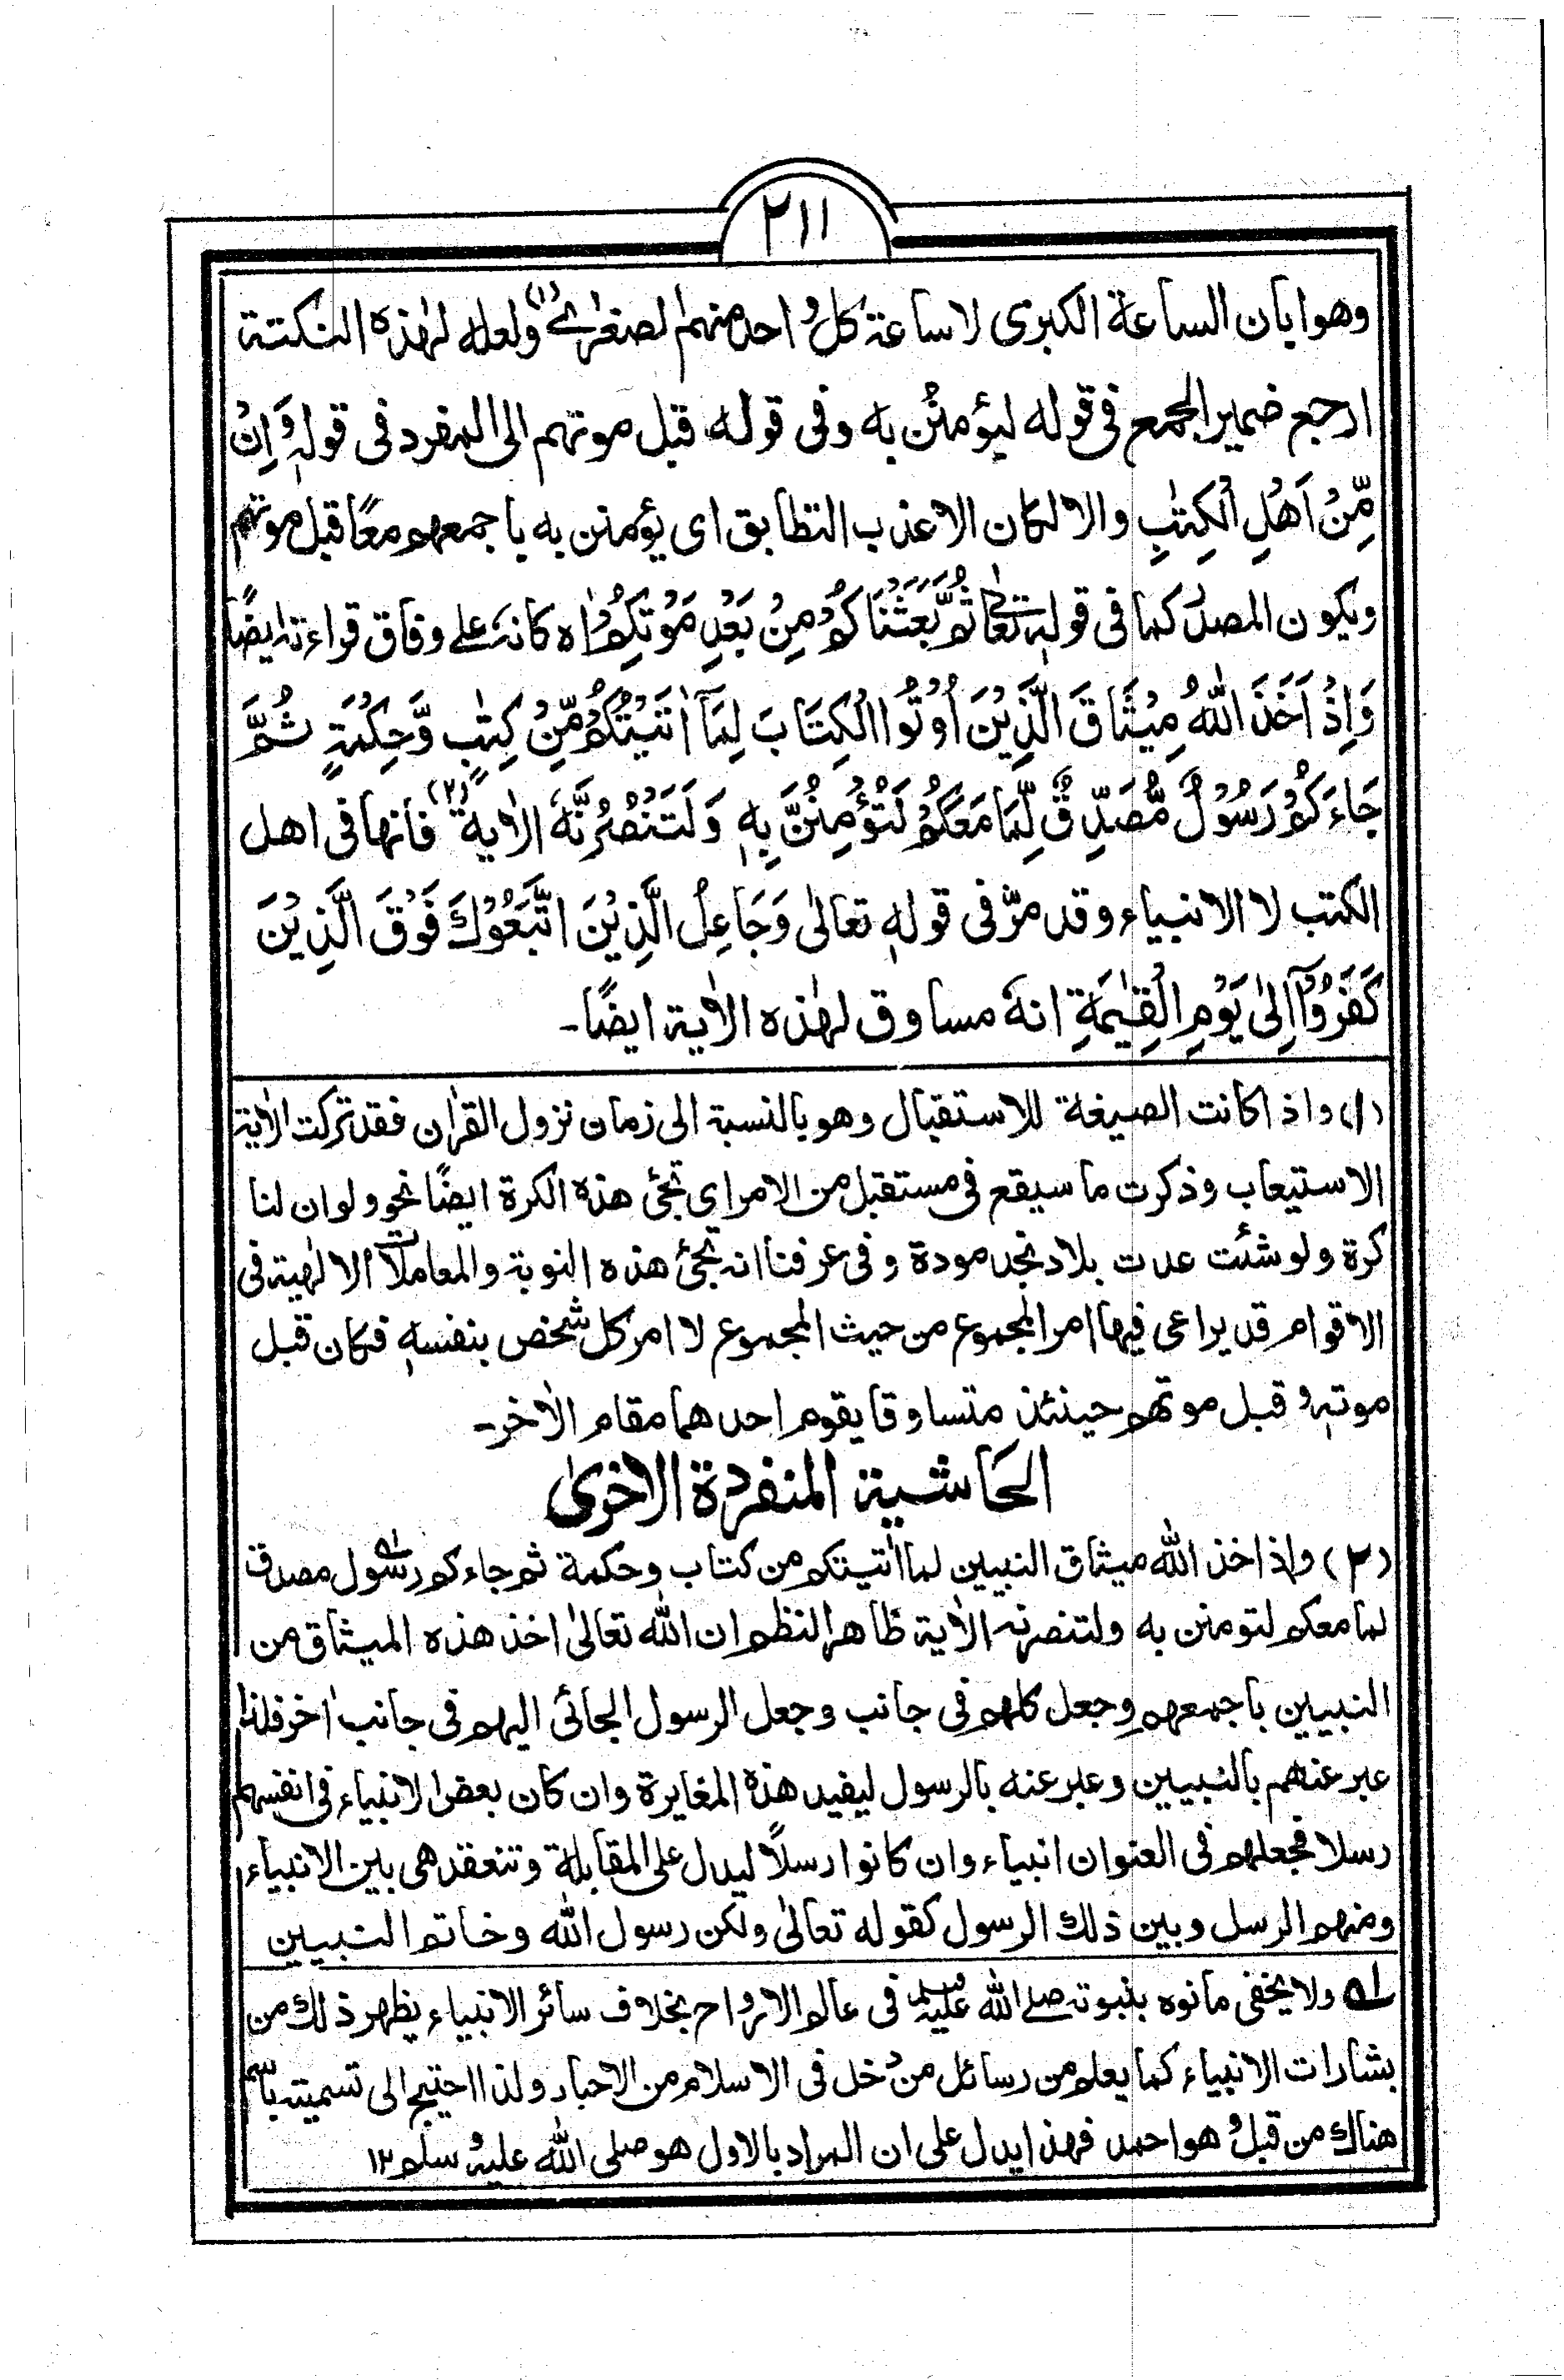 ٢١١
وهو ابان الساعة الكبرى لا ساعة كل واحد منهم الصغرىٰ (١) ولعله لهٰذه النكتة
ارجع ضمير الجمع فى قوله ليؤمنُن به وفى قوله قبل موتهم الى المفرد فى قولهٖ وَاِنْ
مِّنْ اَهْلِ الْكِتٰبِ والا لكان الاعذب التطابق اى يؤمنن به باجمعهم معًا قبل موتهم
ويكون المصدر كما فى قولهٖ تعالىٰ ثُمَّ بَعَثْنَاكُمْ مِنْ بَعْدِ مَوْتِكُمْ اه كانه على وفاق قراءته ايضًا
وَاِذْ اَخَذَ اللّٰهُ مِيْثَاقَ الَّذِيْنَ اُوْتُوا الْكِتَابَ لِمَآ اٰتَيْتُكُمْ مِّنْ كِتٰبٍ وَّحِكْمَةٍ ثُمَّ
جَاءَكُمْ رَسُوْلٌ مُّصَدِّقٌ لِّمَا مَعَكُمْ لَتُؤْمِنُنَّ بِهٖ وَلَتَنْصُرُنَّهٗ الاٰية (٢) فانها فى اهل
الكتٰب لا الانبياء وقد مرّ فى قولهٖ تعالىٰ وَجَاعِلُ الَّذِيْنَ اتَّبَعُوْكَ فَوْقَ الَّذِيْنَ
كَفَرُوْٓا اِلىٰ يَوْمِ الْقِيٰمَةِ انه مساوق لهٰذه الاٰية ايضًا۔
(١) واذا كانت الصيغة للاستقبال وهو بالنسبة الى زمان نزول القراٰن فقد تركت الاٰية
الاستيعاب وذكرت ما سيقع فى مستقبل من الامر اى تجئ هذه الكرة ايضًا نحو ولو ان لنا
كرة ولو شئت عدت بلاد نجد مودة وفى عرفنا انه تجئ هذه النوبة والمعاملات الالٰهية فى
الاقوام قد يراعى فيها امر المجموع من حيث المجموع لا امر كل شخص بنفسهٖ فكان قبل
موتهٖ وقبل موتهم حينئذ متساوقا يقوم احدهما مقام الاٰخر۔
الحَاشية المنفردة الاخرىٰ
(٢) واذ اخذ اللّٰه ميثاق النبيين لما اٰتيتكم من كتاب وحكمة ثم جاءكم رسول ؎١ مصدق
لما معكم لتومنن به ولتنصرنه الاٰية ظاهر النظم ان اللّٰه تعالىٰ اخذ هذه الميثاق من
النبيين باجمعهم وجعل كلهم فى جانب وجعل الرسول الجائى اليهم فى جانب اٰخر فلذا
عبر عنهم بالنبيين وعبر عنه بالرسول ليفيد هذه المغايرة وان كان بعض الانبياء فى انفسهم
رسلا فجعلهم فى العنوان انبياء وان كانوا رسلًا ليدل على المقابلة وتنعقد هى بين الانبياء
ومنهم الرسل وبين ذلك الرسول كقوله تعالىٰ ولكن رسول اللّٰه وخاتم النبيين
؎١ ولا يخفى ما نوه بنبوته صلى اللّٰه عليه وسلم فى عالم الارواح بخلاف سائر الانبياء يظهر ذلك من
بشارات الانبياء كما يعلم من رسائل من دخل فى الاسلام من الاحبار ولذا احتيج الى تسميته باسم
هناك من قبل وهو احمد فهذا يدل على ان المراد بالاول هو صلى اللّٰه عليه وسلم ١٢